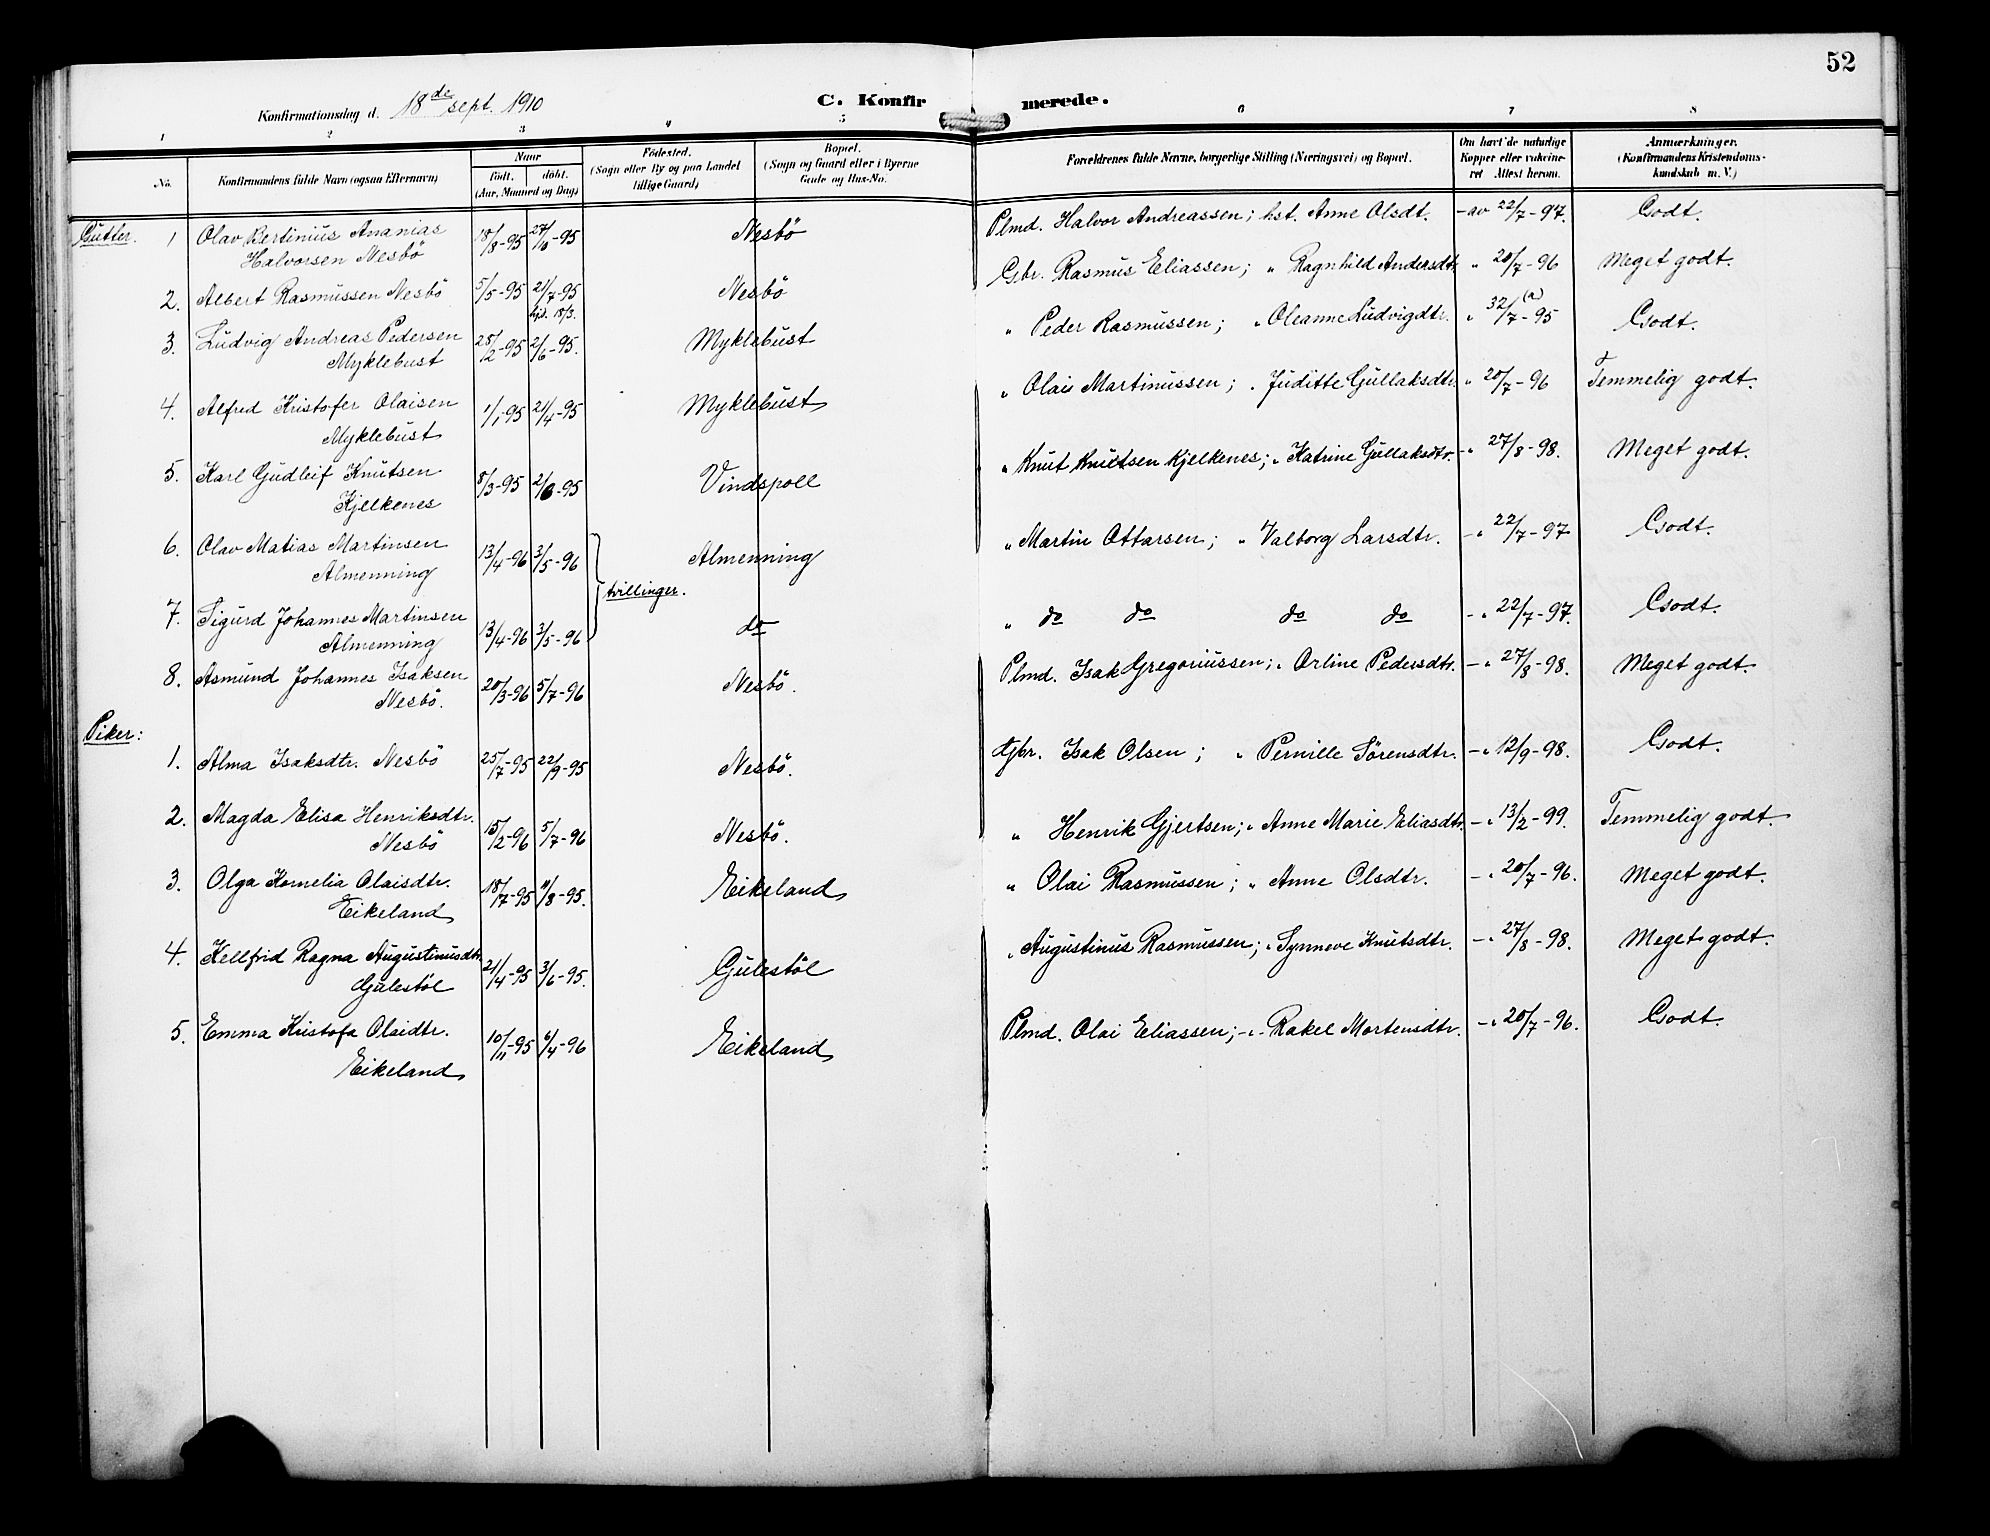 52
Konfirmationsdag d. 18de sept. 1910
C. Konfirmerede.
1 2 3 4 5 6 7 8
No.
Konfirmandens fulde Navn (ogsaa Efternavn)
Naar
født. døbt.
(Aar, Maaned og Dag)
Fødested.
(Sogn eller By og paa Landet
tillige Gaard)
Bopæl.
(Sogn og Gaard eller i Byerne
Gade og Hus-No.
Forældrenes fulde Navne, borgerlige Stilling (Næringsvei) og Bopæl.
Om havt de naturlige
Kopper eller vakcine-
ret Attest herom.
Anmærkninger.
(Konfirmandens Kristendoms-
kundskab m. V.)
Gutter.
1 Olav Bertinius Ananias
Halvorsen Nesbö 18/8-95 27/10-95 Nesbö Plmd. Halvor Andreassen; hst. Anne Olsdt. - av 22/7-97. Godt.
2. Albert Rasmussen Nesbö 5/5-95 21/7-95 Nesbö Gbr. Rasmus Eliassen; " Ragnhild Andersdtr. " 20/7-96 Meget godt.
hjd. 18/3.
3. Ludvig Andreas Pedersen
Myklebust 28/2-95 2/6-95. Myklebust " Peder Rasmussen; " Oleanne Ludvigdtr. " 32/7-95 (a) Godt.
4. Alfred Kristofer Olaisen
Myklebust 1/1-95 21/4-95 Myklebust " Olais Martinussen; " Juditte Gullaksdtr. " 20/7-96 Temmelig godt.
5. Karl Gudleif Knutsen
Kjelkenes 8/3-95 2/6-95 Vindspoll " Knut Knutsen Kjelkenes; " Katrine Gullaksdtr. - " 27/8-98. Meget godt.
6. Olav Matias Martinsen
Almenning 13/4-96 3/5-96 Almenning " Martin Ottarsen; " Valborg Larsdtr. - " 22/7-97 Godt.
tvillinger.
7. Sigurd Johannes Martinsen
Almenning 13/4-96 3/5-96 do " do do do do - " 22/7-97. Godt.
8. Asmund Johannes Isaksen
Nesbö. 20/3-96 5/7-96 Nesbö. Plmd. Isak Gregoriussen; " Orline Pedersdtr. - " 27/8-98. Meget godt.
Piker:
1. Alma Isaksdtr. Nesbö 25/7-95 22/9-95 Nesbö. Gbr. Isak Olsen; " Pernille Sörensdtr. - " 12/9-98. Godt.
2. Magda Elisa Henriksdtr.
Nesbö 15/2-96 5/7-96 Nesbö. " Henrik Gjertsen; " Anne Marie Eliasdtr. - " 13/2-99. Temmelig godt.
3. Olga Kornelia Olaisdtr.
Eikeland 18/7-95 11/8-95. Eikeland " Olai Rasmussen; " Anne Olsdtr. - " 20/7-96. Meget godt.
4. Kellfrid Ragna Augustinusdtr.
Gulestöl 21/4-95 3/6-95. Gulestöl " Augustinus Rasmussen; " Synneve Knutsdtr. - " 27/8-98. Meget godt.
5. Emma Kristofa Olaidtr.
Eikeland 10/11-95 6/4-96 Eikeland Plmd. Olai Eliassen; - " - Rakel Mortensdtr. - " 20/7-96. Godt.